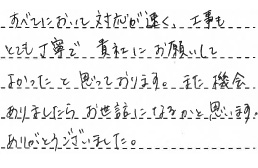 すべてにおいて対応が速く、工事も
とても丁寧で貴社にお願いして
よかったと思っております。また機会
ありましたらお世話になるかと思います。
ありがとうございました。